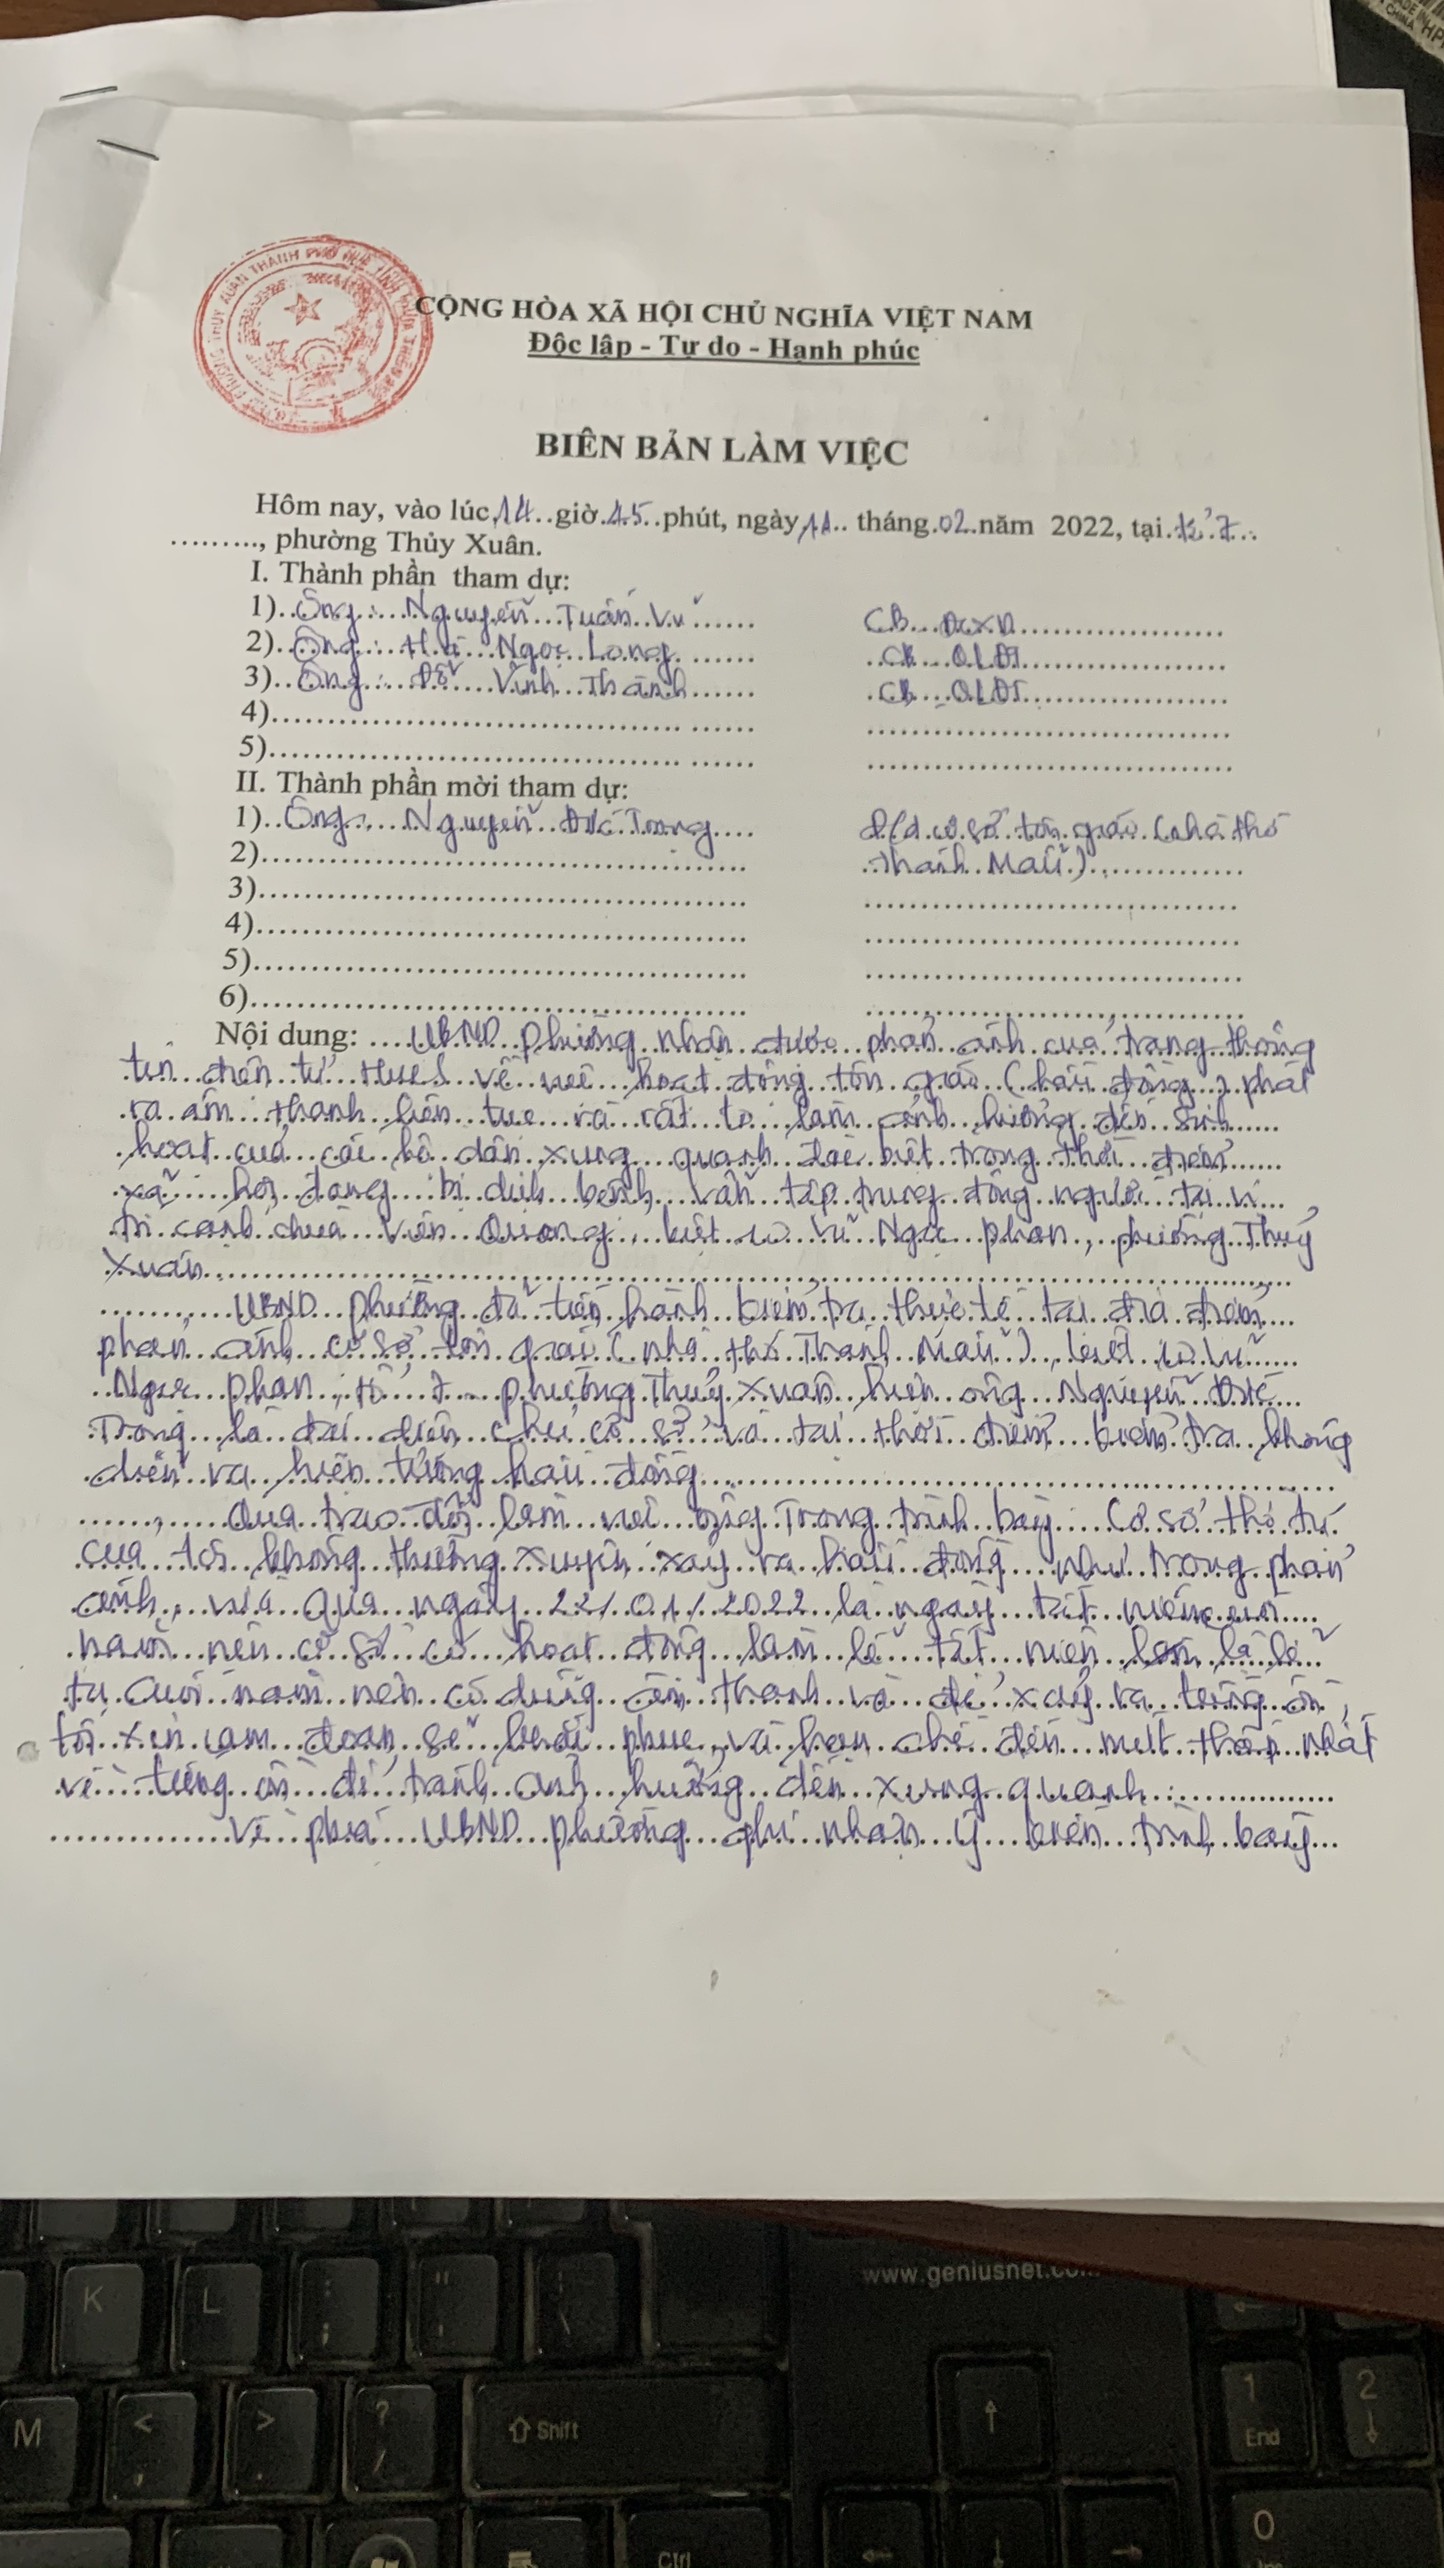 MADE IN
CHINA
HP
PHƯỜNG THỦY XUÂN THÀNH PHỐ HUẾ TỈNH THỪA THIÊN
CỘNG HÒA XÃ HỘI CHỦ NGHĨA VIỆT NAM
Độc lập - Tự do - Hạnh phúc
BIÊN BẢN LÀM VIỆC
Hôm nay, vào lúc 14 giờ 45 phút, ngày 11 tháng 02 năm 2022, tại tổ 7
........., phường Thủy Xuân.
I. Thành phần tham dự:
1) Ông: Nguyễn Tuấn Vũ CB ĐCXD
2) Ông: Ngọc Long CB QLĐT
3) Ông: Đỗ Vĩnh Thành CB QLĐT
4)
5)
II. Thành phần mời tham dự:
1) Ông: Nguyễn Đức Trọng cơ sở tôn giáo (nhà thờ
2) Thánh Mẫu)
3)
4)
5)
6)
Nội dung: UBND phường nhận được phản ánh của trang thông
tin điện tử HueS về việc hoạt động tôn giáo (hầu đồng) phát
ra âm thanh liên tục và rất to làm ảnh hưởng đến sinh
hoạt của các hộ dân xung quanh đặc biệt trong thời điểm
xã hội đang bị dịch bệnh vẫn tập trung đông người tại vị
trí cạnh chùa Vạn Quang, kiệt 10 Vũ Ngọc Phan, phường Thủy
Xuân
UBND phường đã tiến hành kiểm tra thực tế tại địa điểm
phản ánh cơ sở tôn giáo (nhà thờ Thánh Mẫu), kiệt 10 Vũ
Ngọc Phan, tổ 7 phường Thủy Xuân hiện ông Nguyễn Đức
Trọng là đại diện chủ cơ sở và tại thời điểm kiểm tra không
diễn ra hiện tượng hầu đồng
Qua trao đổi làm việc ông Trọng trình bày: Cơ sở thờ tự
của tôi không thường xuyên xảy ra hầu đồng như trong phản
ánh, vừa qua ngày 22/01/2022 là ngày tất niên cuối
năm nên cơ sở có hoạt động làm lễ tất niên là lễ
tự cuối năm nên có dùng âm thanh và để xảy ra tiếng ồn,
tôi xin cam đoan sẽ khắc phục và hạn chế đến mức thấp nhất
về tiếng ồn để tránh ảnh hưởng đến xung quanh.
Về phía UBND phường ghi nhận ý kiến trình bày
www.geniusnet.com
K L : ; " '
1 End 2
M < , > . ? / Shift
Ctrl 0